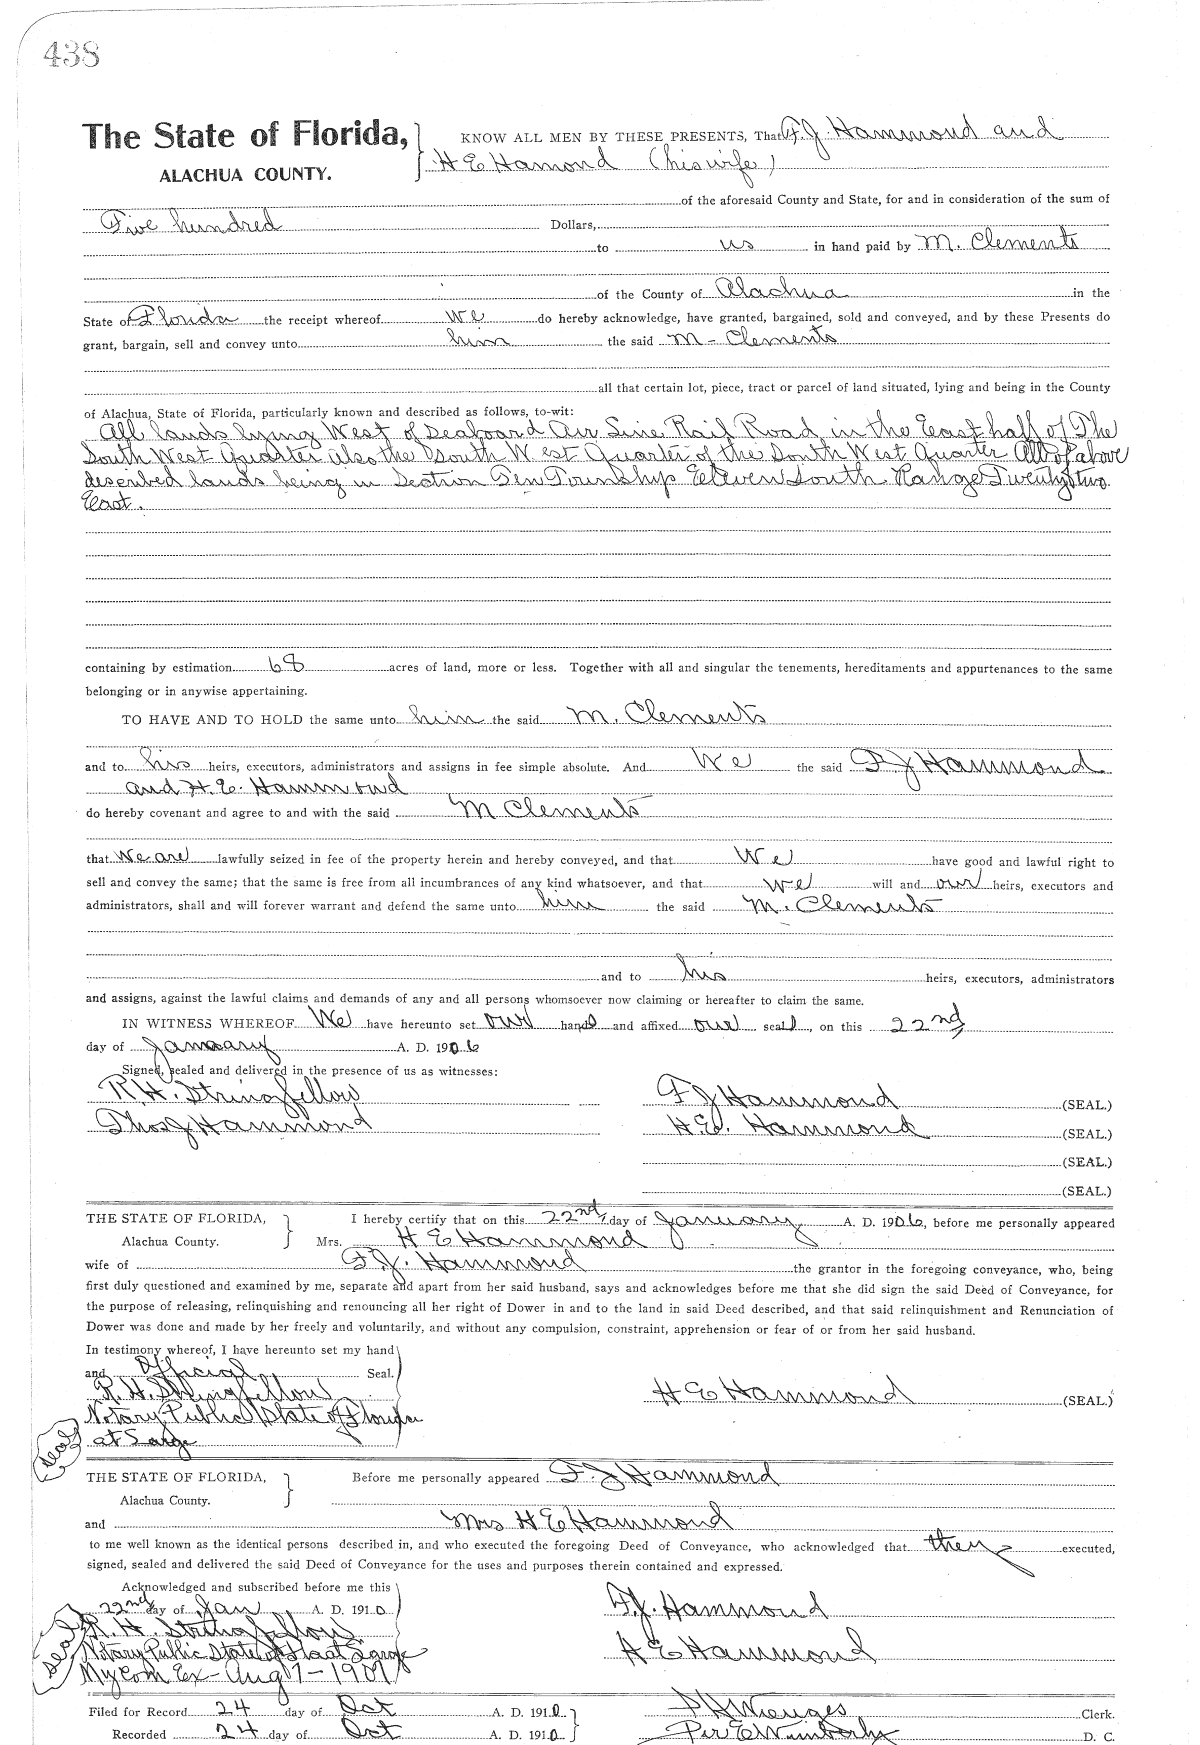 438
The State of Florida, KNOW ALL MEN BY THESE PRESENTS, That F. J. Hammond and
ALACHUA COUNTY. H E Hamond (his wife)
of the aforesaid County and State, for and in consideration of the sum of
Five hundred Dollars,
to us in hand paid by M. Clements
of the County of Alachua in the
State of Florida the receipt whereof we do hereby acknowledge, have granted, bargained, sold and conveyed, and by these Presents do
grant, bargain, sell and convey unto him the said M - Clements
all that certain lot, piece, tract or parcel of land situated, lying and being in the County
of Alachua, State of Florida, particularly known and described as follows, to-wit:
All lands lying West of Seaboard Air Line Rail Road in the East half of The
South West Quarter also the South West Quarter of the South West Quarter All of above
described lands being in Section Ten Township Eleven South Range Twenty two
East.
containing by estimation 68 acres of land, more or less. Together with all and singular the tenements, hereditaments and appurtenances to the same
belonging or in anywise appertaining.
TO HAVE AND TO HOLD the same unto him the said M. Clements
and to his heirs, executors, administrators and assigns in fee simple absolute. And We the said F J Hammond
and H. E. Hammond
do hereby covenant and agree to and with the said M Clements
that we are lawfully seized in fee of the property herein and hereby conveyed, and that We have good and lawful right to
sell and convey the same; that the same is free from all incumbrances of any kind whatsoever, and that we will and our heirs, executors and
administrators, shall and will forever warrant and defend the same unto him the said M. Clements
and to his heirs, executors, administrators
and assigns, against the lawful claims and demands of any and all persons whomsoever now claiming or hereafter to claim the same.
IN WITNESS WHEREOF We have hereunto set our hand and affixed our seal, on this 22nd
day of January A. D. 1906
Signed, sealed and delivered in the presence of us as witnesses:
R. H. Stringfellow F J Hammond (SEAL.)
Thos J Hammond H. E. Hammond (SEAL.)
(SEAL.)
(SEAL.)
THE STATE OF FLORIDA, I hereby certify that on this 22nd, day of January A. D. 1906, before me personally appeared
Alachua County. Mrs. H E Hammond
wife of F. J. Hammond the grantor in the foregoing conveyance, who, being
first duly questioned and examined by me, separate and apart from her said husband, says and acknowledges before me that she did sign the said Deed of Conveyance, for
the purpose of releasing, relinquishing and renouncing all her right of Dower in and to the land in said Deed described, and that said relinquishment and Renunciation of
Dower was done and made by her freely and voluntarily, and without any compulsion, constraint, apprehension or fear of or from her said husband.
In testimony whereof, I have hereunto set my hand
and Official Seal.
R. H. Stringfellow H E Hammond (SEAL)
Notary Public State of Florida
seal at Large
THE STATE OF FLORIDA, Before me personally appeared F. J Hammond
Alachua County.
and Mrs H E Hammond
to me well known as the identical persons described in, and who executed the foregoing Deed of Conveyance, who acknowledged that they executed,
signed, sealed and delivered the said Deed of Conveyance for the uses and purposes therein contained and expressed.
Acknowledged and subscribed before me this
22nd day of Jan A. D. 1910 F. J. Hammond
R. H. Stringfellow
seal Notary Public State of Fla at Large H E Hammond
My Com Ex - Aug 7 - 1907
Filed for Record 24 day of Oct A. D. 1910 Clerk.
Recorded 24 day of Oct A. D. 1910 Per E Wimberly D. C.